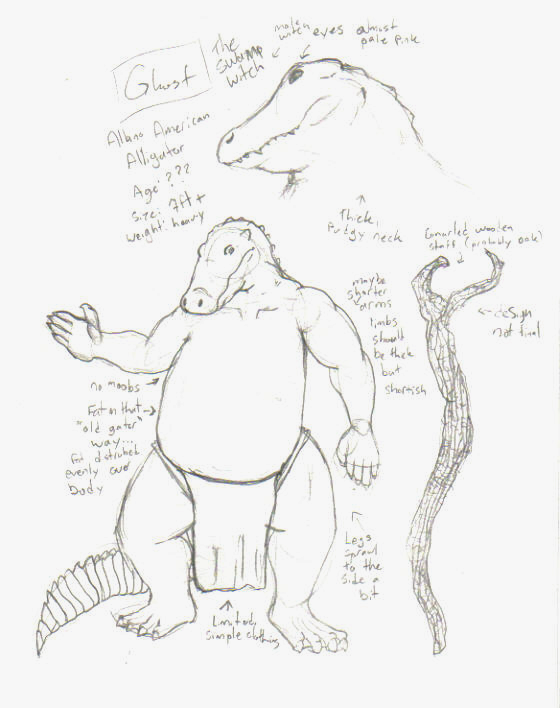 Ghost
The
swamp
witch
male
witch
eyes almost
pale pink
Albino American
Alligator
Age: ???
Size: 7ft+
Weight: heavy
Thick,
Pudgy neck
Gnarled wooden
staff (probably oak)
design
not final
maybe
shorter
arms
limbs
should
be thick
but
shortish
no moobs
Fat in that
"old gator"
way...
fat distributed
evenly over
body
Legs
sprawl
to the
side a
bit
Limited,
simple clothing